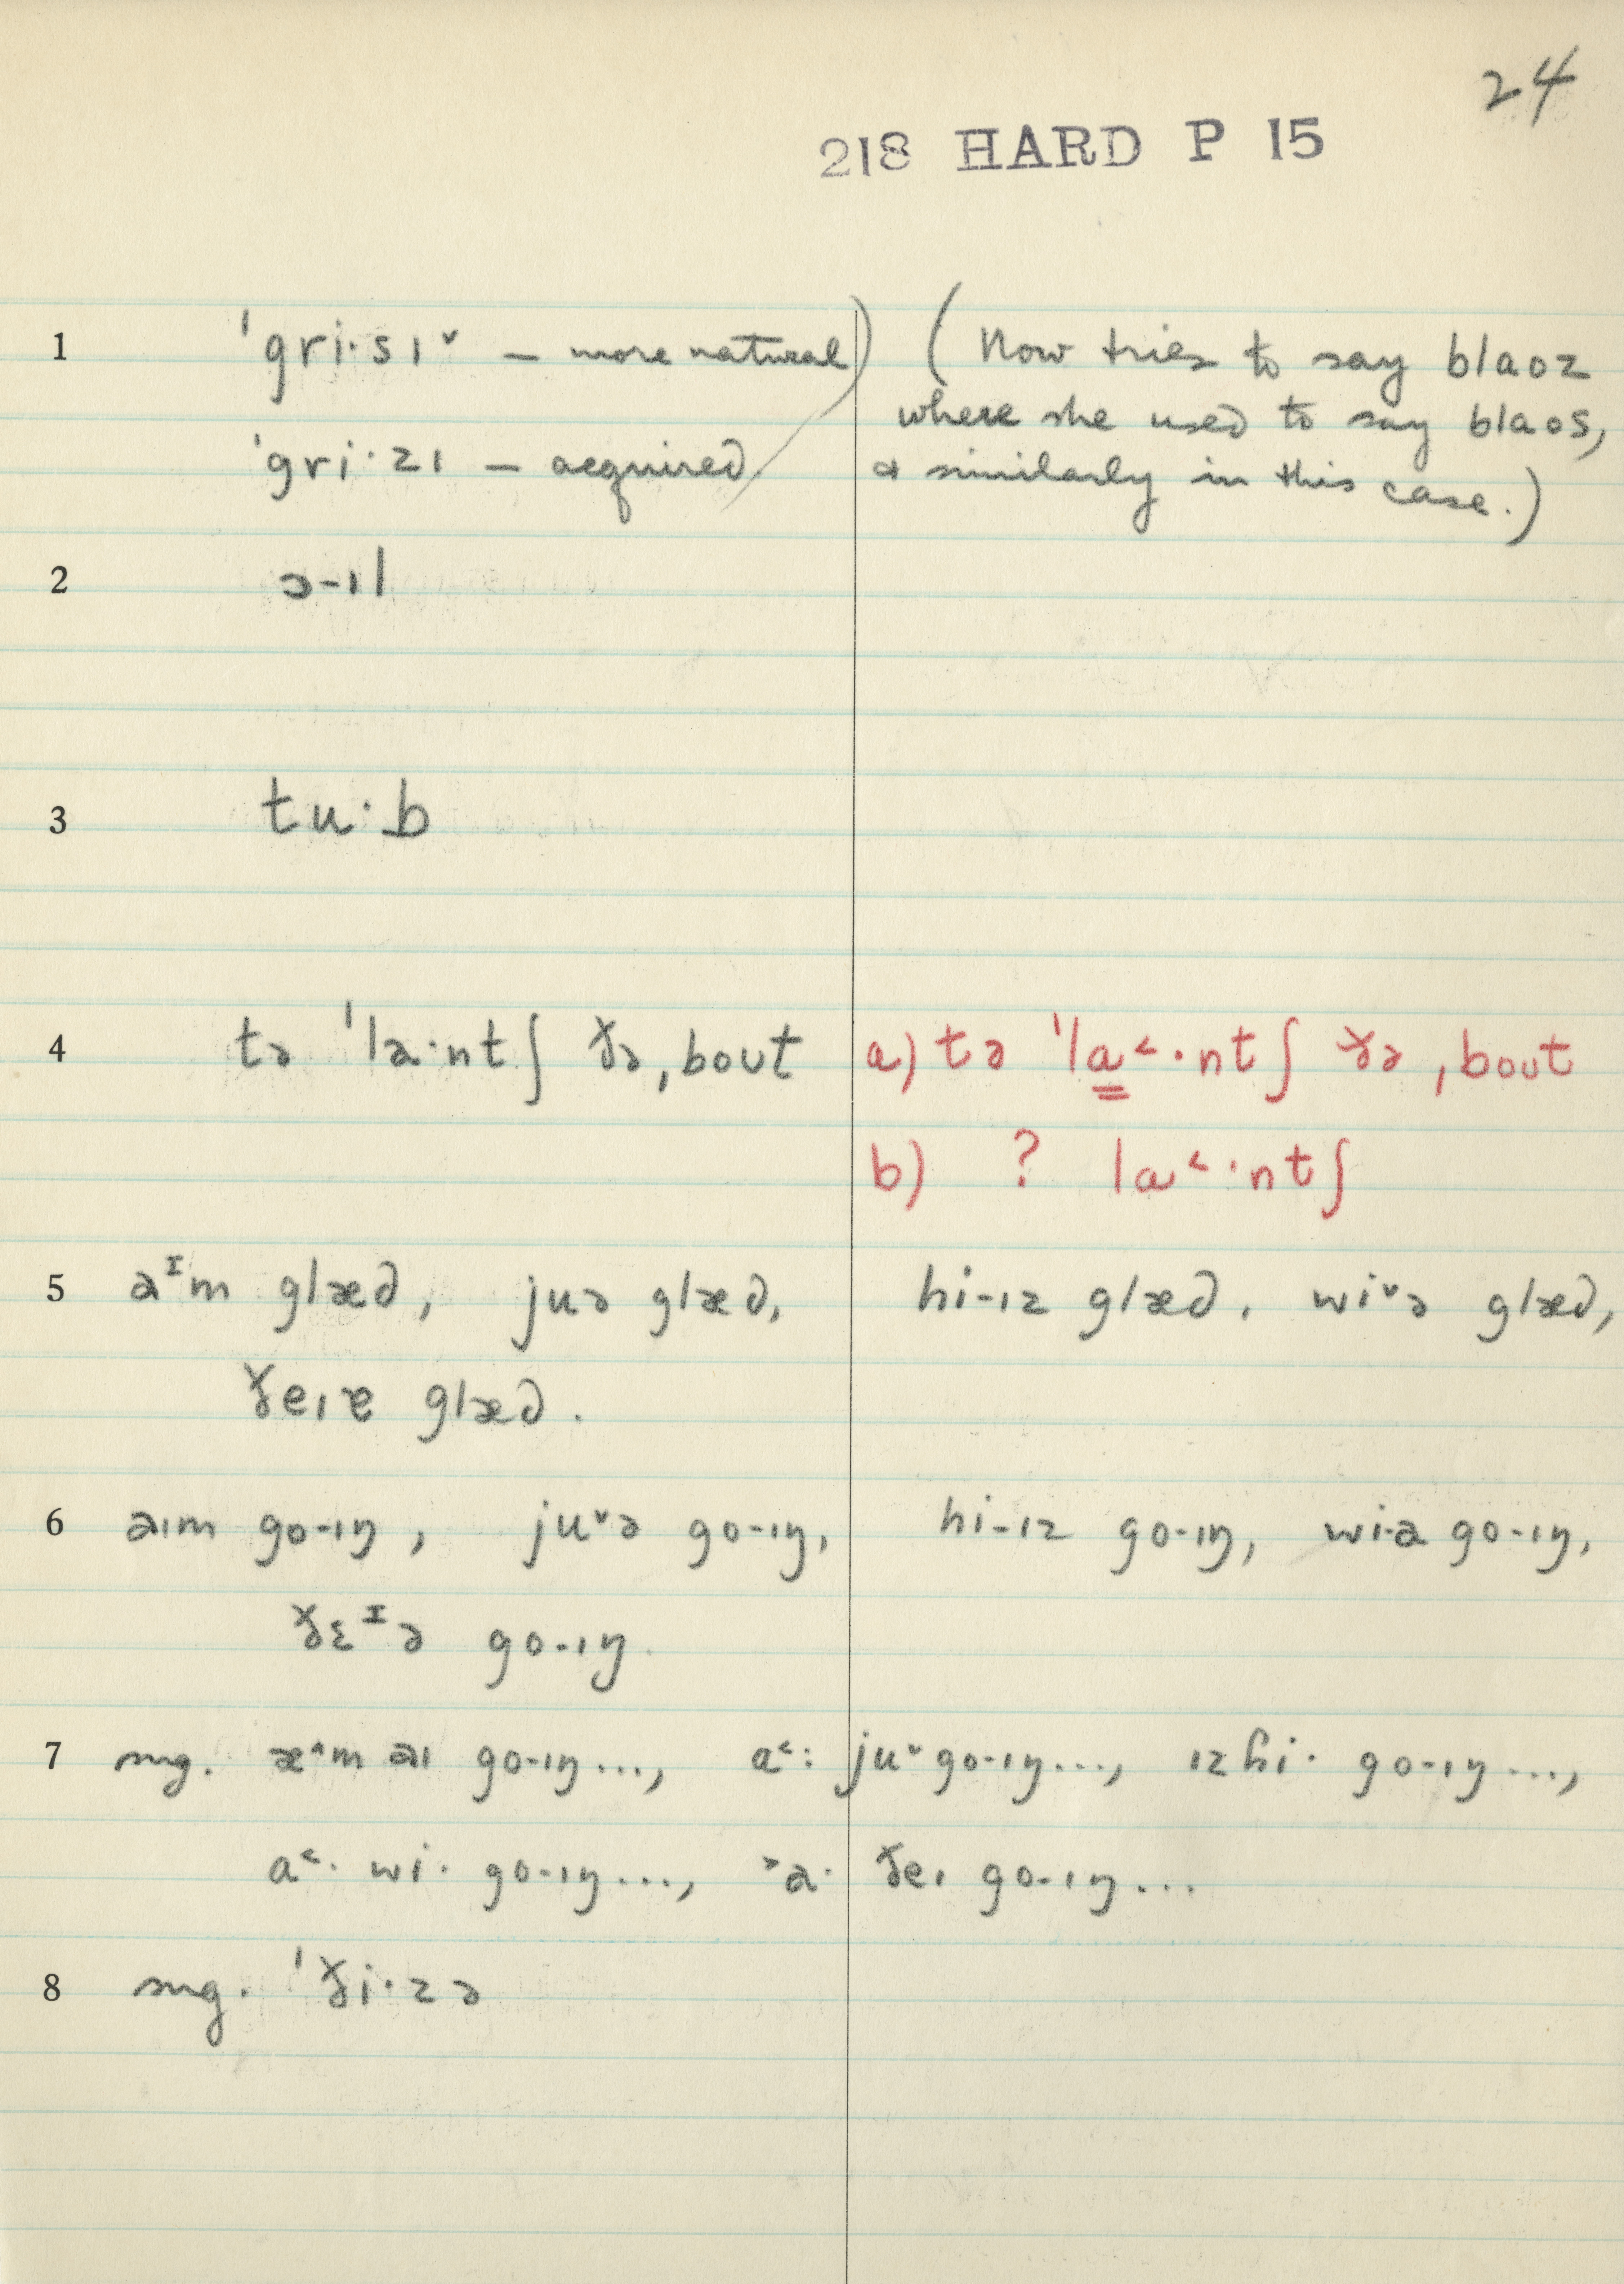 24
218 HARD P 15
1 ˈgri·sɪ˅ – more natural) (Now tries to say blaoz
where she used to say blaos,
ˈgri·zɪ – acquired & similarly in this case.)
2 ɔ-ɪl
3 tu·b
4 tə ˈla·ntʃ ðə ˌbout a) tə ˈla˂·ntʃ ðə ˌbout
b) ? la˂·ntʃ
5 aᴵm glæd, juə glæd, hi-ɪz glæd, wi˅ə glæd,
ðeɪɐ glæd.
6 aɪm go-ɪŋ, ju˅ə go-ɪŋ, hi-ɪz go-ɪŋ, wi-a go-ɪŋ,
ðɛᴵə go-ɪŋ.
7 sug. æ˄m aɪ go-ɪŋ..., a˂: ju˅ go-ɪŋ..., ɪz hi· go-ɪŋ...,
a˂· wi· go-ɪŋ..., ˃a· ðeɪ go-ɪŋ...
8 sug. ˈði·zə